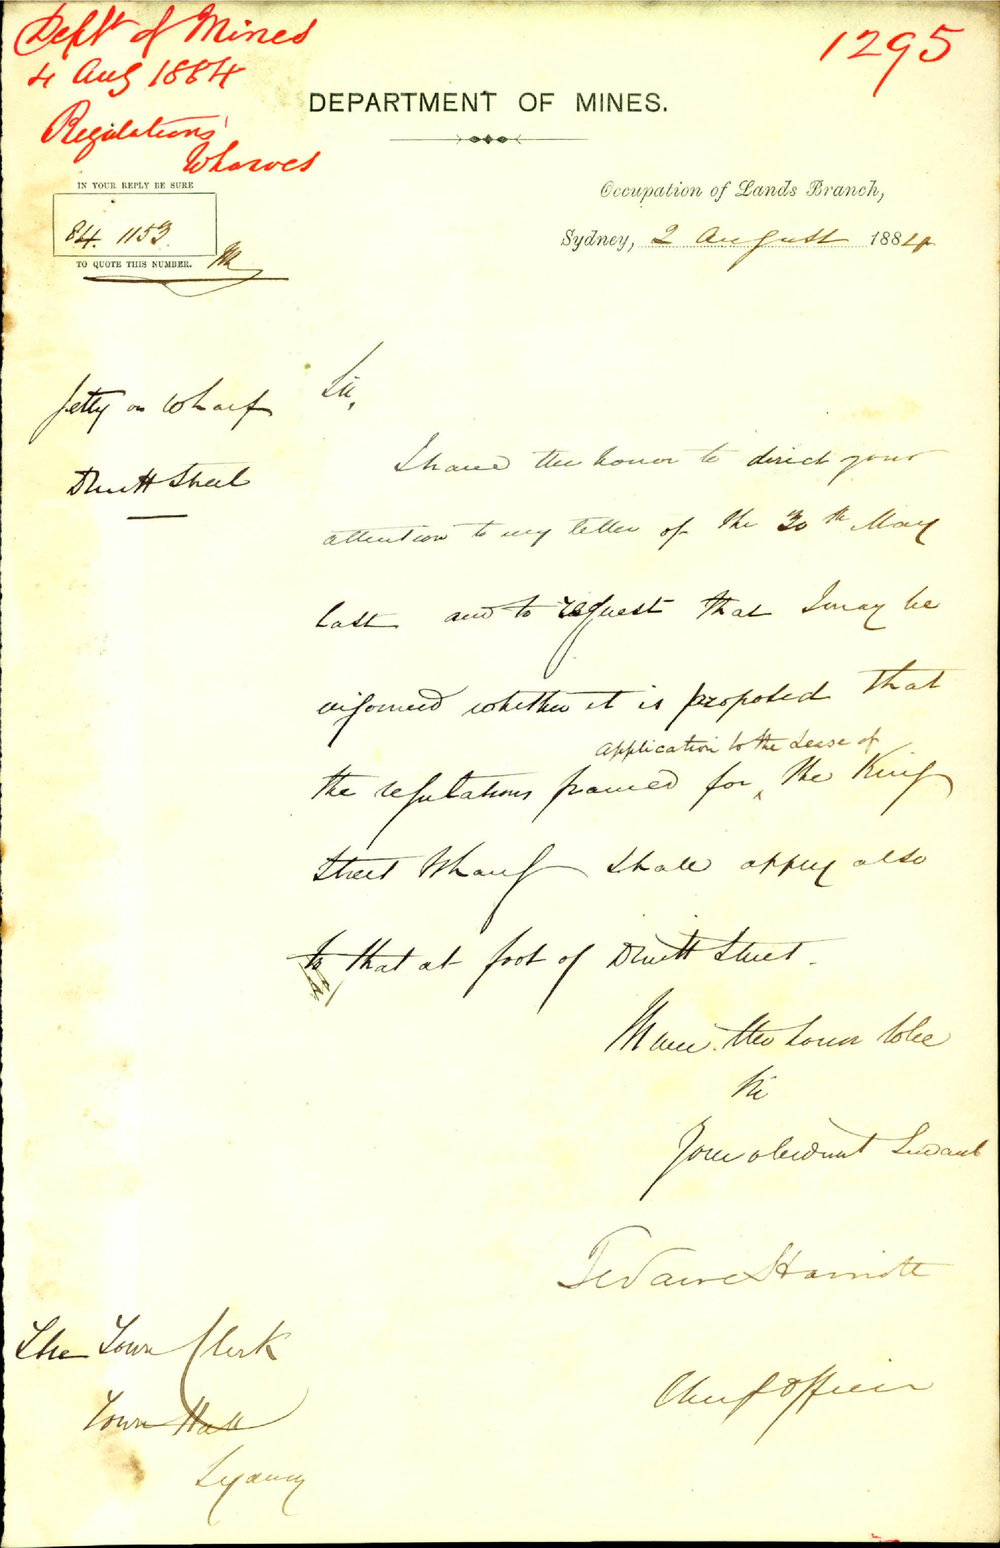 Dept of Mines
4 Aug 1884
Regulations
Wharves
1295
DEPARTMENT OF MINES.
IN YOUR REPLY BE SURE
84. 1153.
TO QUOTE THIS NUMBER.
Occupation of Lands Branch,
Sydney, 2 August 1884
Jetty or Wharf
Druitt Street
Sir,
I have the honor to direct your
attention to my letter of the 30th May
last and to request that I may be
informed whether it is proposed that
application to the Lease of
the regulations framed for ‸ the King
Street Wharf shall apply also
to that at foot of Druitt Street.
I have the honor to be
Sir
Your obedient Servant
Harriott
Chief Officer
The Town Clerk
Town Hall
Sydney